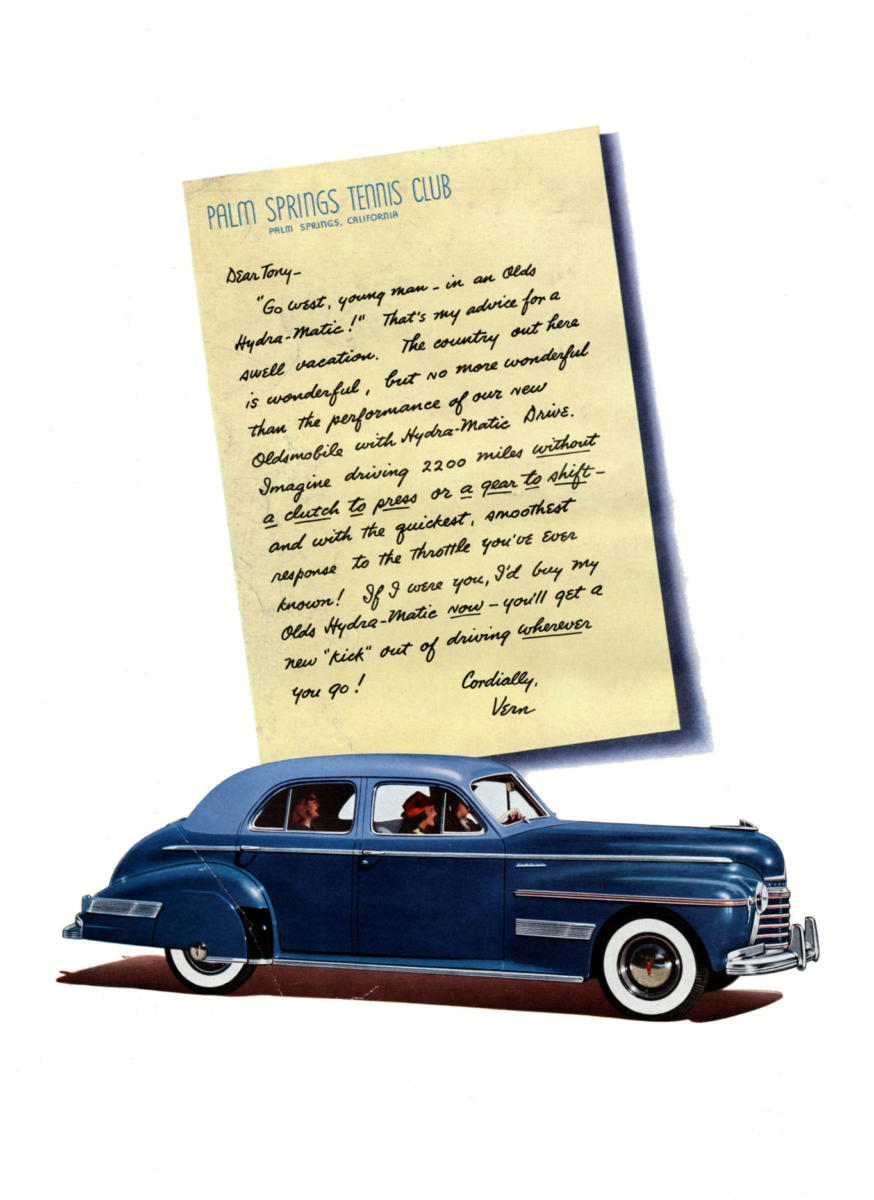 PALM SPRINGS TENNIS CLUB
PALM SPRINGS, CALIFORNIA
Dear Tony-
"Go west, young man - in an Olds
Hydra-Matic!" That's my advice for a
swell vacation. The country out here
is wonderful, but no more wonderful
than the performance of our new
Oldsmobile with Hydra-Matic Drive.
Imagine driving 2200 miles without
a clutch to press or a gear to shift-
and with the quickest, smoothest
response to the throttle you've ever
known! If I were you, I'd buy my
Olds Hydra-Matic now - you'll get a
new "kick" out of driving wherever
you go!
Cordially,
Vern